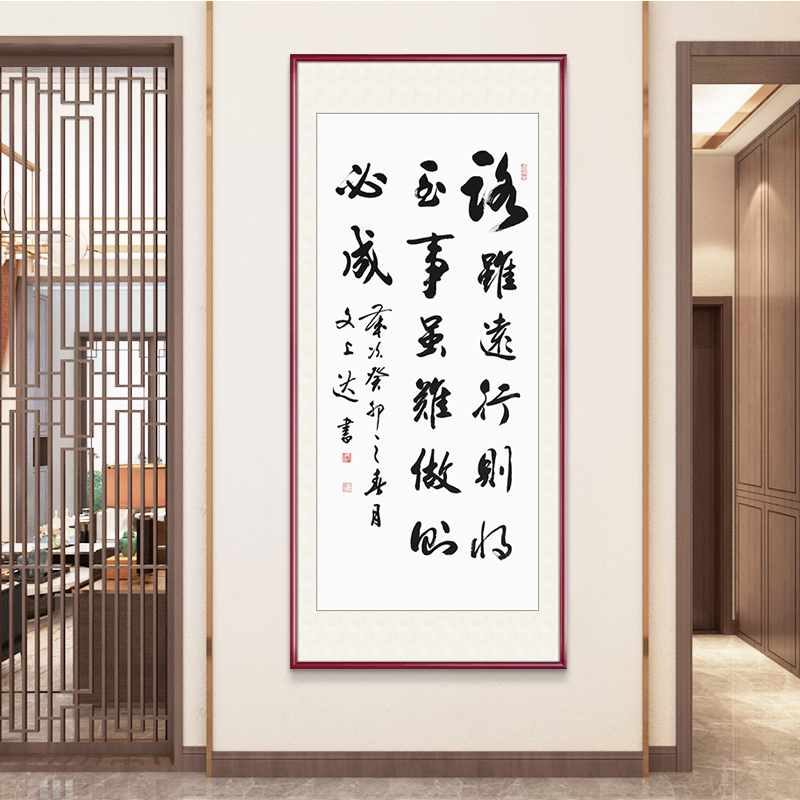 路雖遠行則将
至事虽難做则
必成
歲次癸卯之春月
文上達書